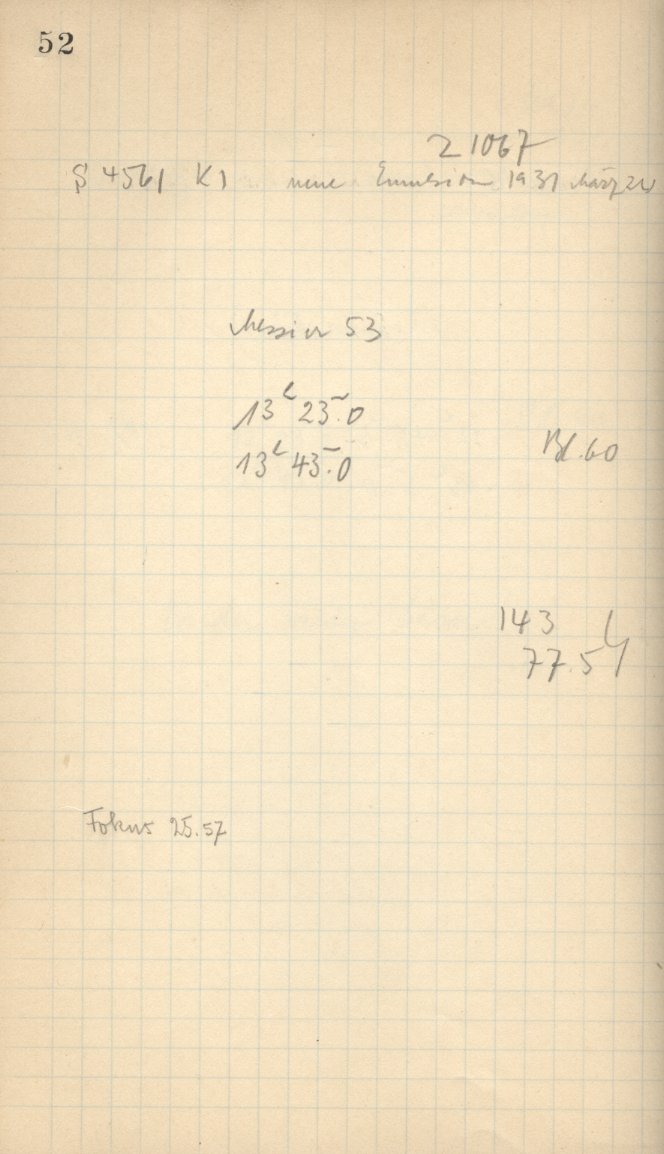 52
Z 1067
S 4561 K1 neue Emulsion 1931 März 24
Messier 53
13h 23m.0
13h 43m.0
Bl. 60
143
77.5
Fokus 25.57